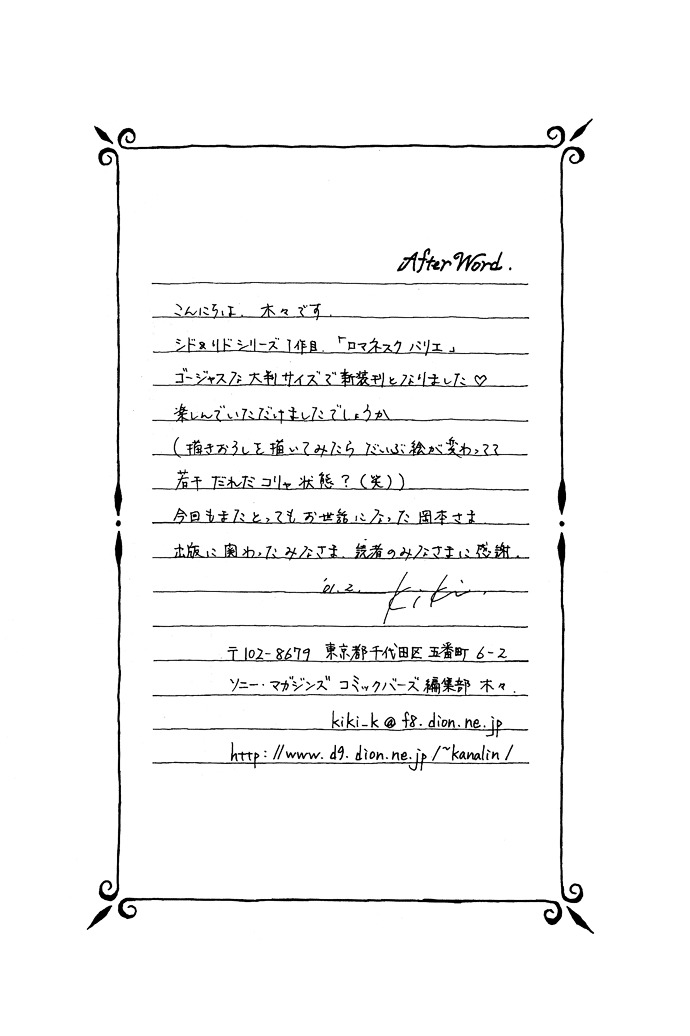 After Word.
こんにちは、木々です。
シド&リドシリーズ1作目、「ロマネスクバリエ」
ゴージャスな大判サイズで新装刊となりました♡
楽しんでいただけましたでしょうか
(描きおろしを描いてみたらだいぶ絵が変わってて
若干だれだコリャ状態?(笑))
今回もまたとってもお世話になった岡本さま
出版に関わったみなさま、読者のみなさまに感謝。
'01.2. kiki.
〒102-8679 東京都千代田区五番町6-2
ソニー・マガジンズ コミックバーズ編集部 木々。
kiki_k@f8.dion.ne.jp
http://www.d9.dion.ne.jp/~kanalin/